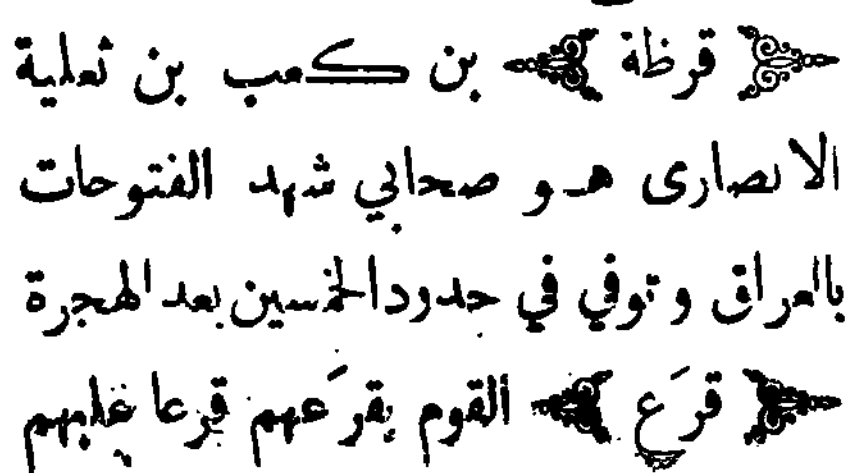 ﴿ قرظة ﴾ بن كعب بن ثعلبة
الانصارى هو صحابي شهد الفتوحات
بالعراق وتوفي في حدود الخمسين بعد الهجرة
﴿ قرَع ﴾ القوم يقرَعهم قرعا غلبهم